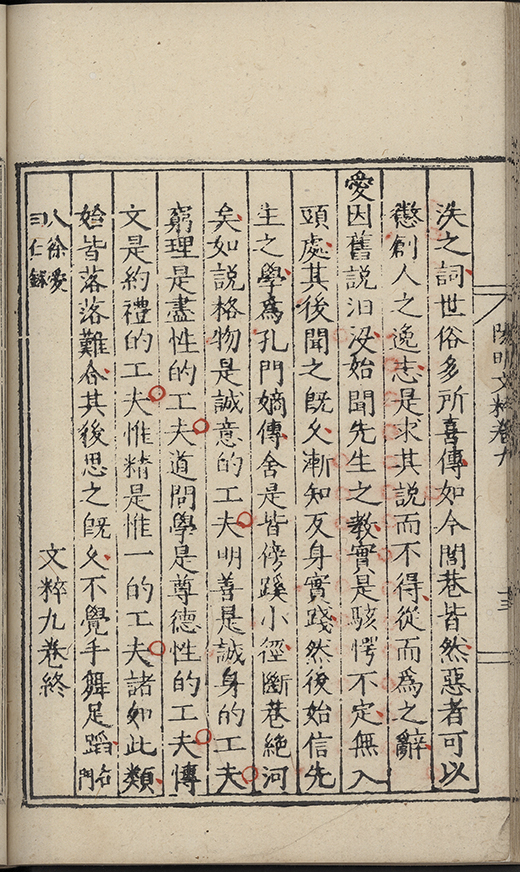 陽明文粹卷九 十三
泆之詞世俗多所喜傳如今閭巷皆然惡者可以
懲創人之逸志是求其說而不得從而爲之辭
愛因舊說汨没始聞先生之教實是駭愕不定無入
頭處其後聞之既久漸知反身實踐然後始信先
生之學爲孔門嫡傳舍是皆傍蹊小徑斷巷絕河
矣如說格物是誠意的工夫明善是誠身的工夫
窮理是盡性的工夫道問學是尊德性的工夫博
文是約禮的工夫惟精是惟一的工夫諸如此類
始皆落落難合其後思之既久不覺手舞足蹈右門
人徐愛曰仁錄 文粹九卷終